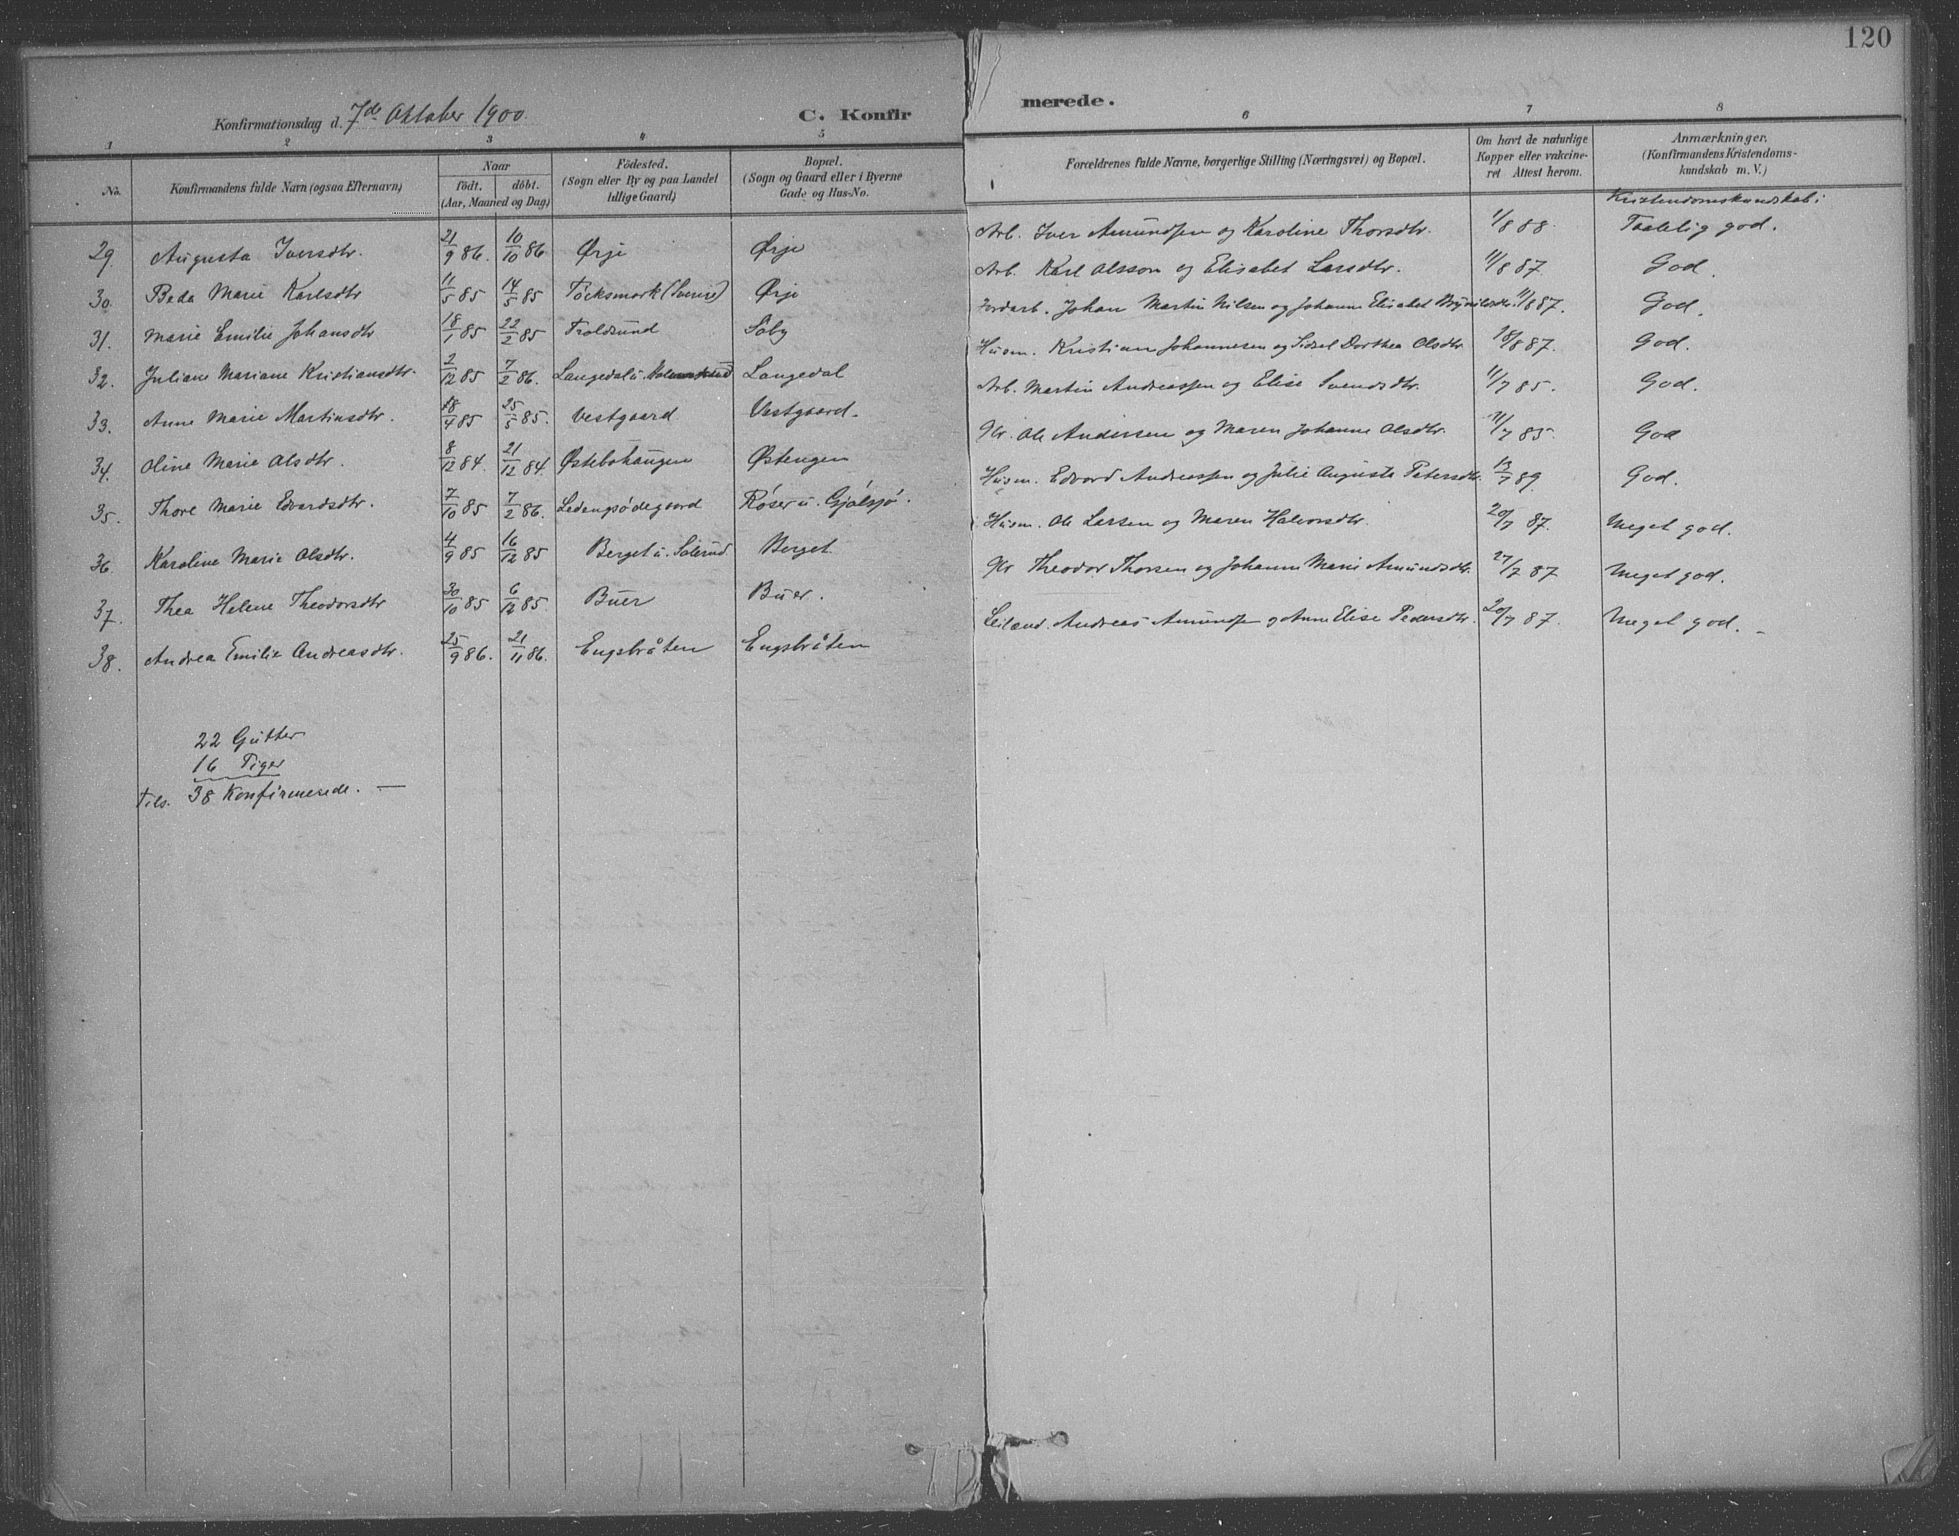 120
Konfirmationsdag d. 7de Oktober 1900. C. Konfirmerede.
1 2 3 4 5 6 7 8
No. Konfirmandens fulde Navn (ogsaa Efternavn) Naar födt. döbt. (Aar, Maaned og Dag) Födested. (Sogn eller By og paa Landet tillige Gaard) Bopæl. (Sogn og Gaard eller i Byerne Gade og Hus-No. Forældrenes fulde Navne, borgerlige Stilling (Næringsvei) og Bopæl. Om havt de naturlige Kopper eller vakcineret Attest herom. Anmærkninger. (Konfirmandens Kristendomskundskab m. V.)
Kristendomskundskab:
29. Augusta Iversdtr. 21/9 86. 10/10 86 Ørje Ørje Arb. Iver Amundsen og Karoline Thorsdtr. 1/8 88. Taalelig god.
30. Beda Marie Karlsdtr 11/5 85 14/5 85 Töcksmark (Sverige) Ørje Arb. Karl Olsson og Elisabet Larsdtr. 11/8 87. God.
31. Marie Emilie Johansdtr 18/1 85 22/2 85 Troldsund Söby Jordarb. Johan Martin Nilsen og Johanne Elisabet Brynildsdtr. 11/8 87. God.
32. Juliane Mariane Kristiansdtr. 2/12 85 7/2 86. Langedal u. Langedal Husm. Kristian Johannesen og Sidsel Dorthea Olsdtr 18/8 87. God.
33. Anne Marie Martinsdtr. 18/4 85 25/5 85. Vestgaard Vestgaard. Arb. Martin Andreassen og Elise Svendsdtr. 11/7 85. God.
34. Oline Marie Olsdtr. 8/12 84. 21/12 84. Østebohaugen Østengen Gr. Ole Andersen og Maren Johanne Olsdtr. 11/7 85. God
35. Thore Marie Edvardsdtr. 7/10 85 7/2 86. Ledengsødegaard Røser u. Gjølsjø. Husm. Edvard Andreassen og Julie Augusta Petersdtr. 13/7 89. God.
36. Karoline Marie Olsdtr. 4/9 85 16/12 85 Berget u. Solerud Berget Husm. Ole Larsen og Maren Halvorsdtr. 20/7 87. Meget god.
37. Thea Helene Theodorsdtr 30/10 85 6/12 85. Buer Buer. Gr Theodor Thorsen og Johanne Marie Amundsdtr. 27/7 87 Meget god.
38. Andrea Emilie Andreasdtr. 25/9 86. 21/11 86. Engsbråten Engsbråten Leilænd. Andreas Amundsen og Anne Elise Pedersdtr. 20/7 87. Meget god. –
22 Gutter
16 Piger
Tils. 38 Konfirmerede. —